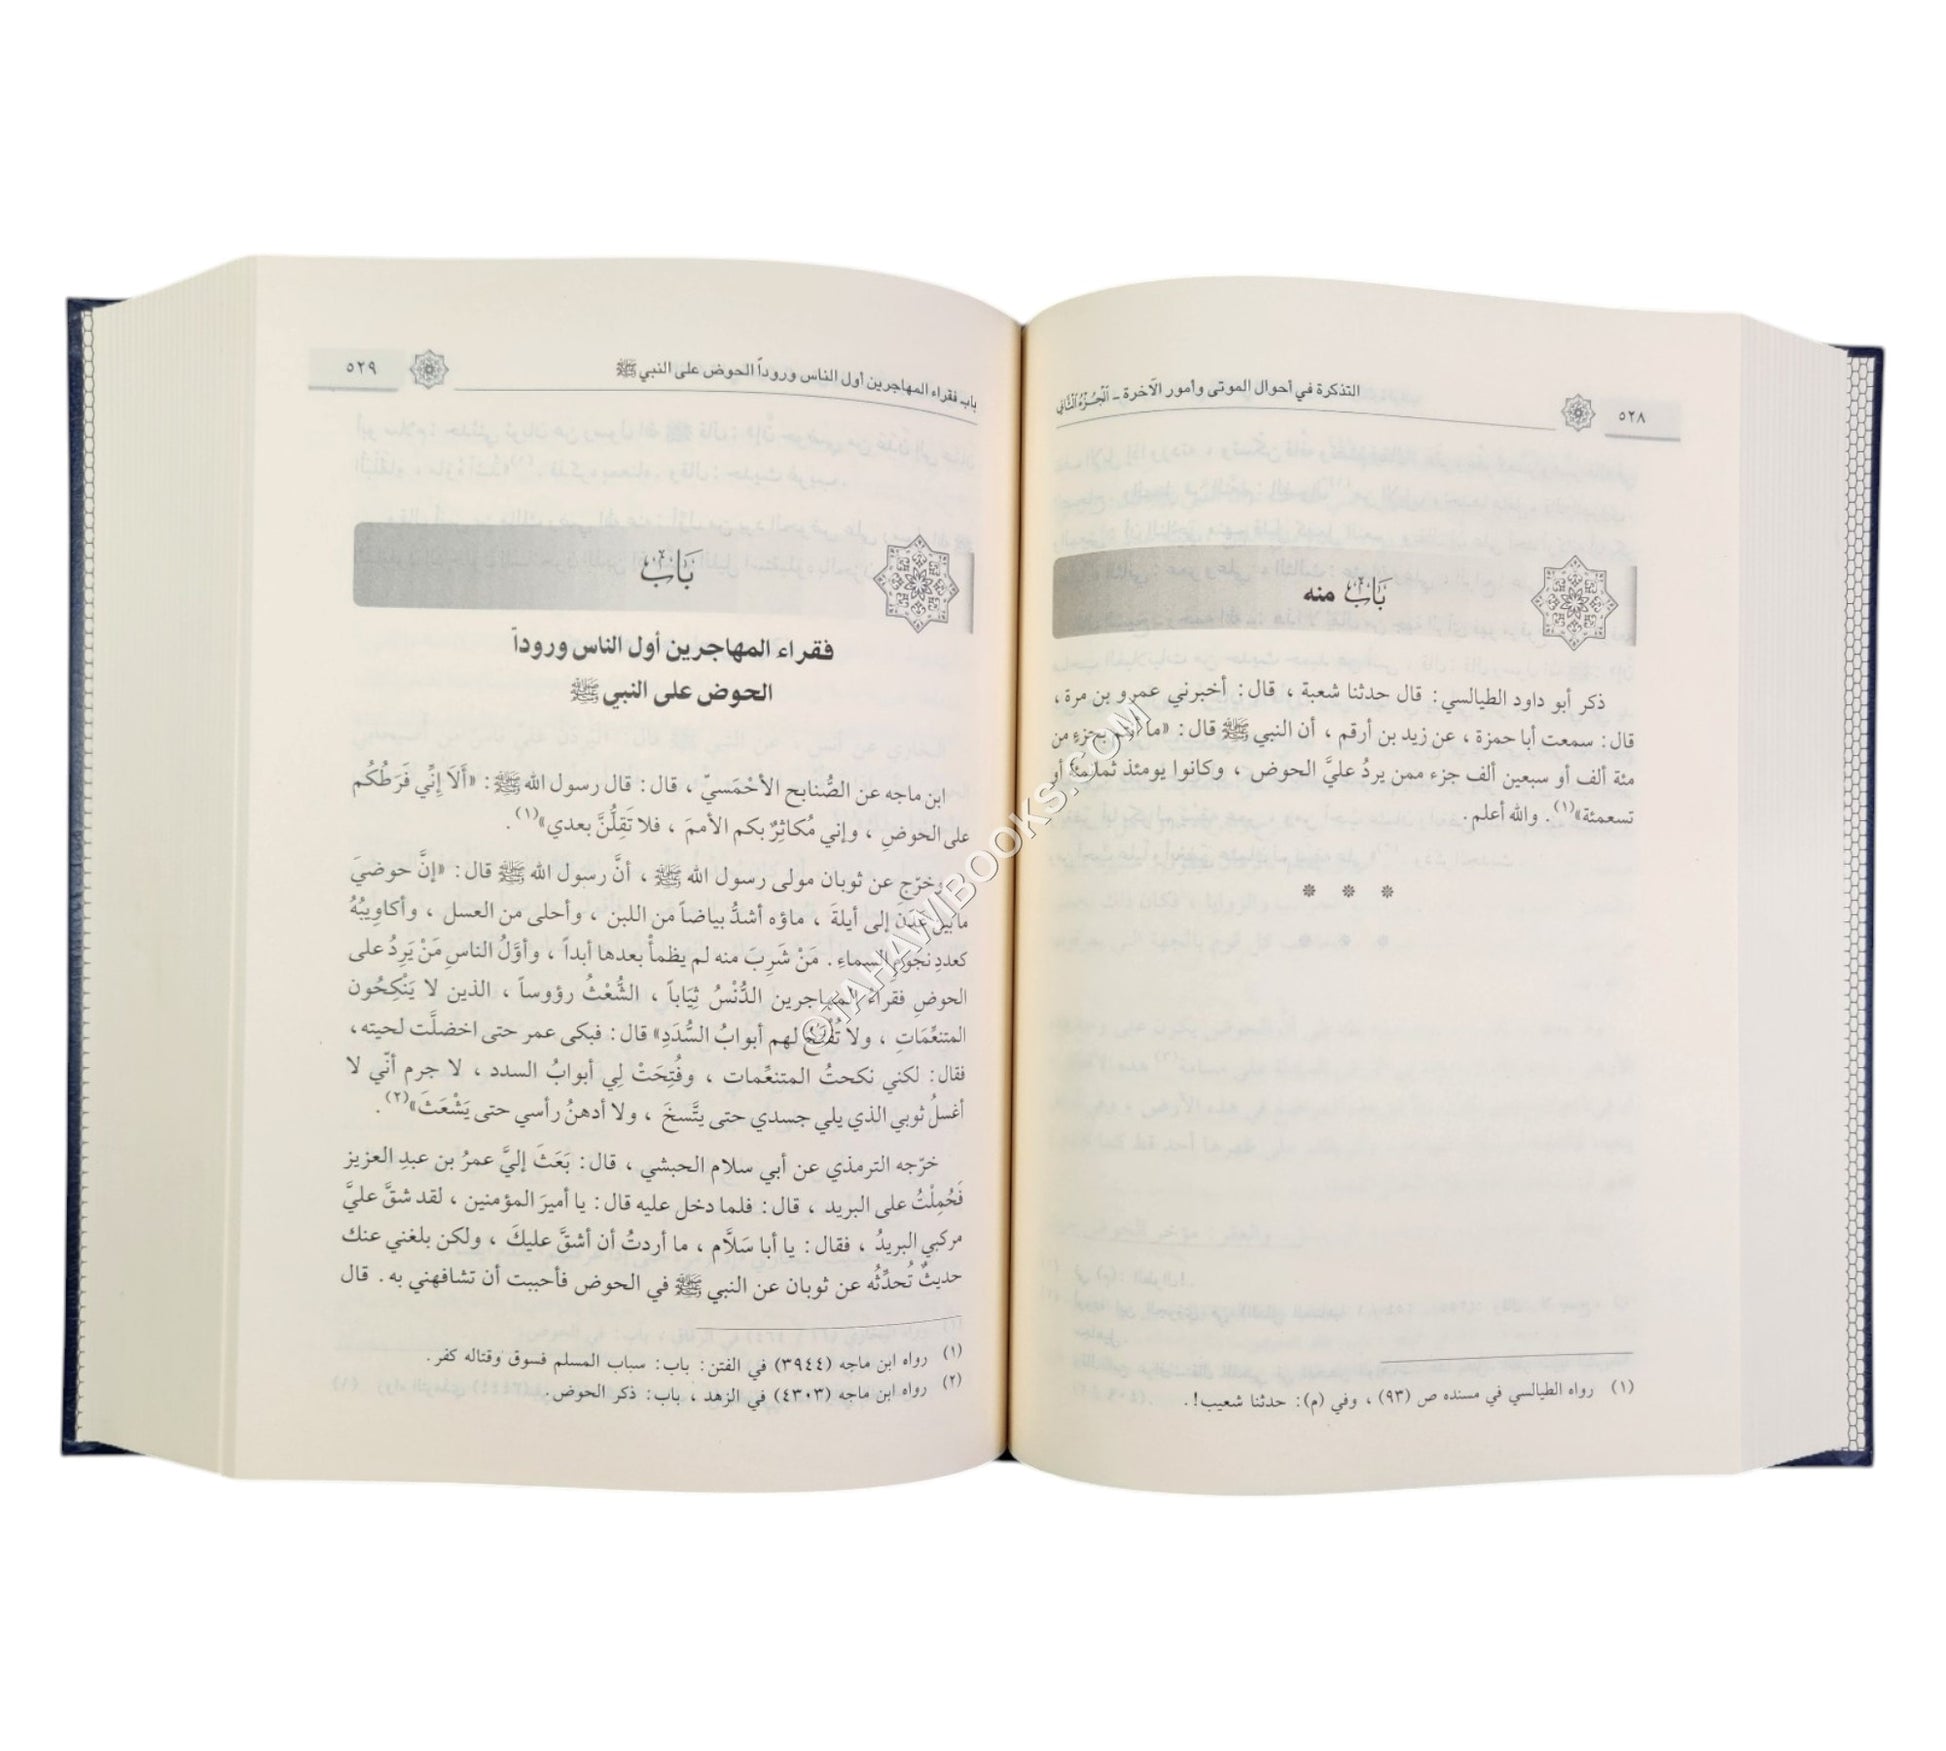 التذكرة في أحوال الموتى وأمور الآخرة - الجزء الثاني
٥٢٨
باب منه
ذكر أبو داود الطيالسي: قال حدثنا شعبة ، قال: أخبرني عمرو بن مرة ،
قال: سمعت أبا حمزة ، عن زيد بن أرقم ، أن النبي ﷺ قال: «ما أنتم بجزءٍ من
مئة ألف أو سبعين ألف جزء ممن يردُ عليَّ الحوض ، وكانوا يومئذ ثمانمئة أو
تسعمئة»(١). والله أعلم.
* * *
(١) رواه الطيالسي في مسنده ص (٩٣) ، وفي (م): حدثنا شعيب!.
باب فقراء المهاجرين أول الناس وروداً الحوض على النبي ﷺ
٥٢٩
باب
فقراء المهاجرين أول الناس وروداً
الحوض على النبي ﷺ
ابن ماجه عن الصُّنابح الأحْمَسيّ ، قال: قال رسول الله ﷺ: «أَلَا إنِّي فَرَطُكُم
على الحوضِ ، وإني مُكاثِرٌ بكم الأممَ ، فلا تَقِلُنَّ بعدي»(١).
وخرّج عن ثوبان مولى رسول الله ﷺ ، أنَّ رسول الله ﷺ قال: «إنَّ حوضيَ
مابَيْنَ عَدَنَ إلى أيلةَ ، ماؤه أشدُّ بياضاً من اللبن ، وأحلى من العسل ، وأكاوِيبُهُ
كعددِ نجومِ السماءِ. مَنْ شَرِبَ منه لم يظمأْ بعدها أبداً ، وأوَّلُ الناسِ مَنْ يَرِدُ على
الحوضِ فقراءُ المهاجرين الدُّنْسُ ثِيَاباً ، الشُّعْثُ رؤوساً ، الذين لا يَنْكِحُون
المتنعِّمَاتِ ، ولا تُفْتَحُ لهم أبوابُ السُّدَدِ» قال: فبكى عمر حتى اخضلَّت لحيته،
فقال: لكني نكحتُ المتنعِّمات ، وفُتِحَتْ لِي أبوابُ السدد ، لا جرم أنّي لا
أغسلُ ثوبي الذي يلي جسدي حتى يتَّسخَ ، ولا أدهنُ رأسي حتى يَشْعَثَ»(٢).
خرّجه الترمذي عن أبي سلام الحبشي ، قال: بَعَثَ إليَّ عمرُ بن عبدِ العزيز
فَحُمِلْتُ على البريد ، قال: فلما دخل عليه قال: يا أميرَ المؤمنين ، لقد شقَّ عليَّ
مركبي البريدُ ، فقال: يا أبا سَلَّام ، ما أردتُ أن أشقَّ عليكَ ، ولكن بلغني عنك
حديثٌ تُحدِّثُه عن ثوبان عن النبي ﷺ في الحوض فأحببت أن تشافهني به. قال
(١) رواه ابن ماجه (٣٩٤٤) في الفتن: باب: سباب المسلم فسوق وقتاله كفر.
(٢) رواه ابن ماجه (٤٣٠٣) في الزهد ، باب: ذكر الحوض.
©TAHAWIBOOKS.COM